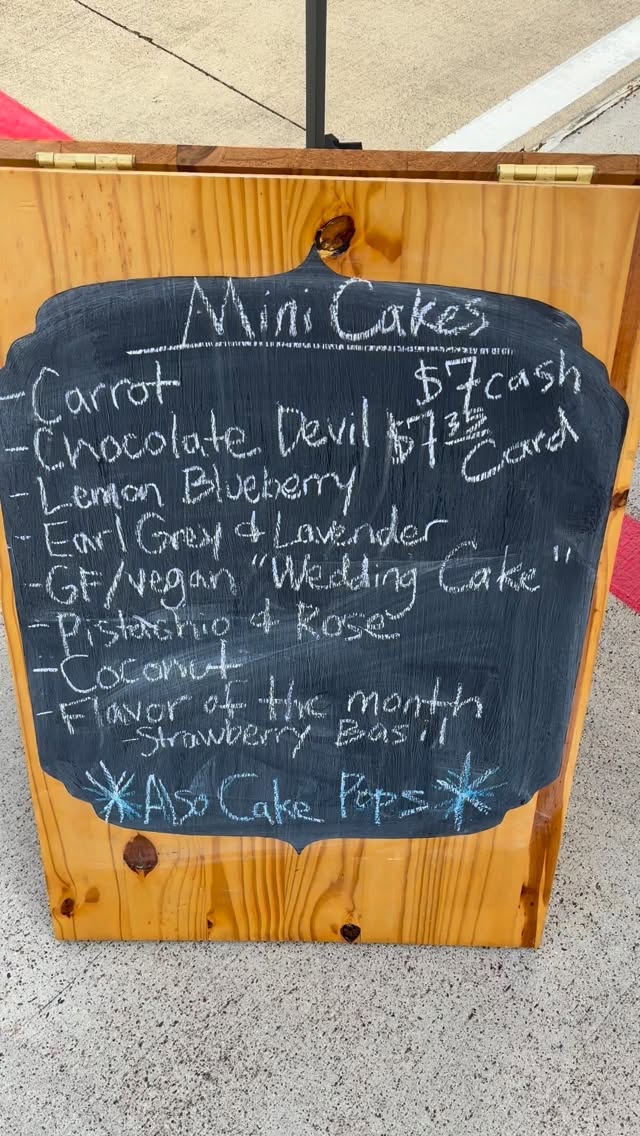 Mini Cakes
- Carrot $7 cash
- Chocolate Devil $7.35 Card
- Lemon Blueberry
- Earl Grey & Lavender
- GF/Vegan "Wedding Cake"
- Pistachio & Rose
- Coconut
- Flavor of the month
- Strawberry Basil
Also Cake Pops